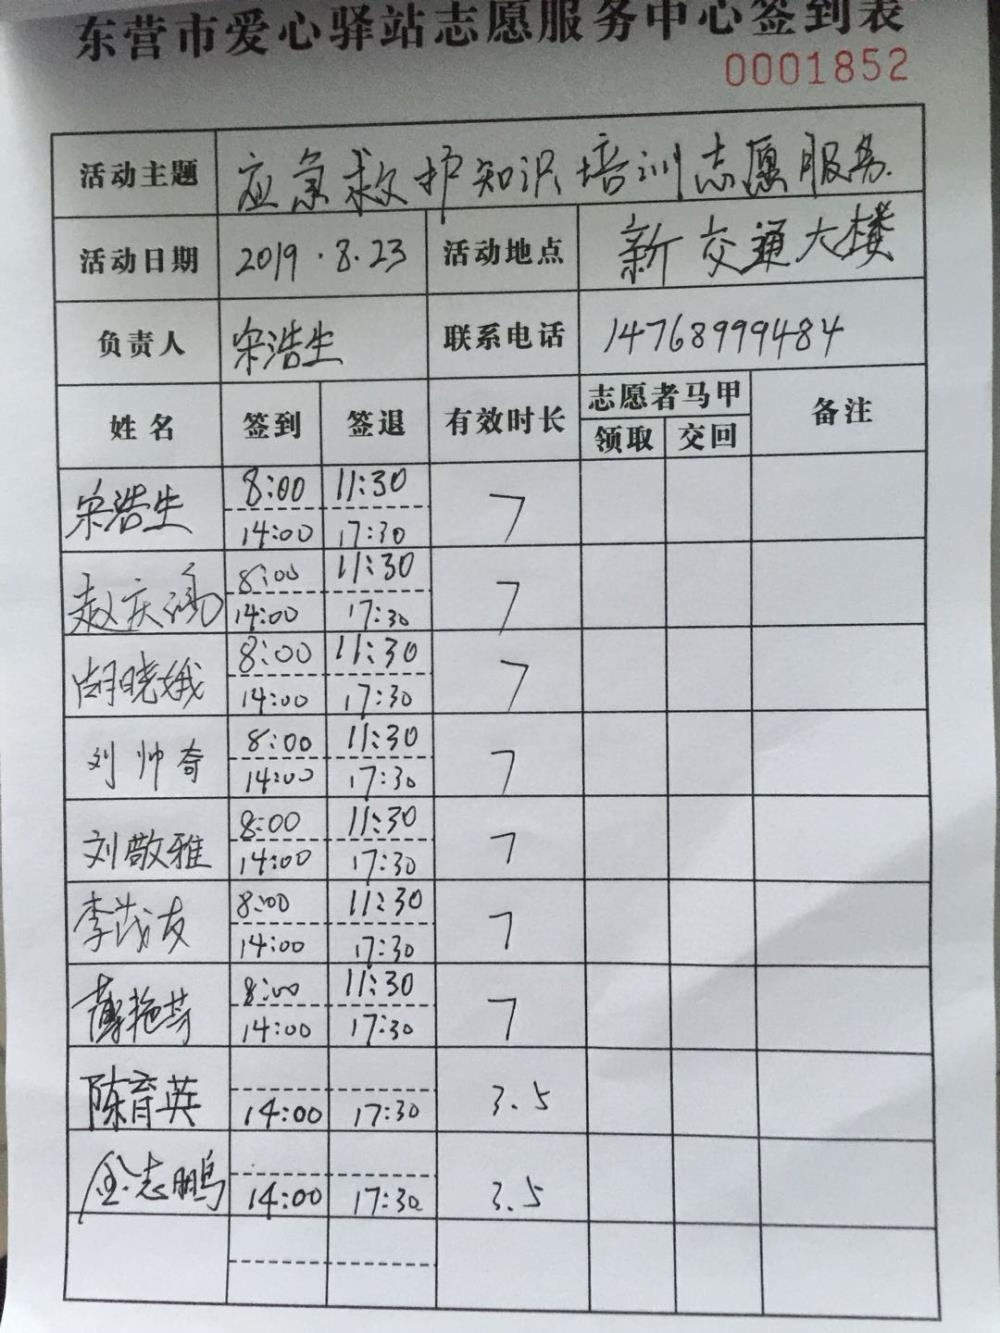 东营市爱心驿站志愿服务中心签到表
0001852
活动主题 应急救护知识培训志愿服务
活动日期 2019.8.23 活动地点 新交通大楼
负责人 宋浩生 联系电话 14768999484
姓名 签到 签退 有效时长 志愿者马甲 备注
领取 交回
宋浩生 8:00 11:30 7
14:00 17:30
赵庆鸿 8:00 11:30 7
14:00 17:30
胡晓娥 8:00 11:30 7
14:00 17:30
刘帅奇 8:00 11:30 7
14:00 17:30
刘敬雅 8:00 11:30 7
14:00 17:30
李茂友 8:00 11:30 7
14:00 17:30
薄艳芬 8:00 11:30 7
14:00 17:30
陈育英 14:00 17:30 3.5
金志鹏 14:00 17:30 3.5